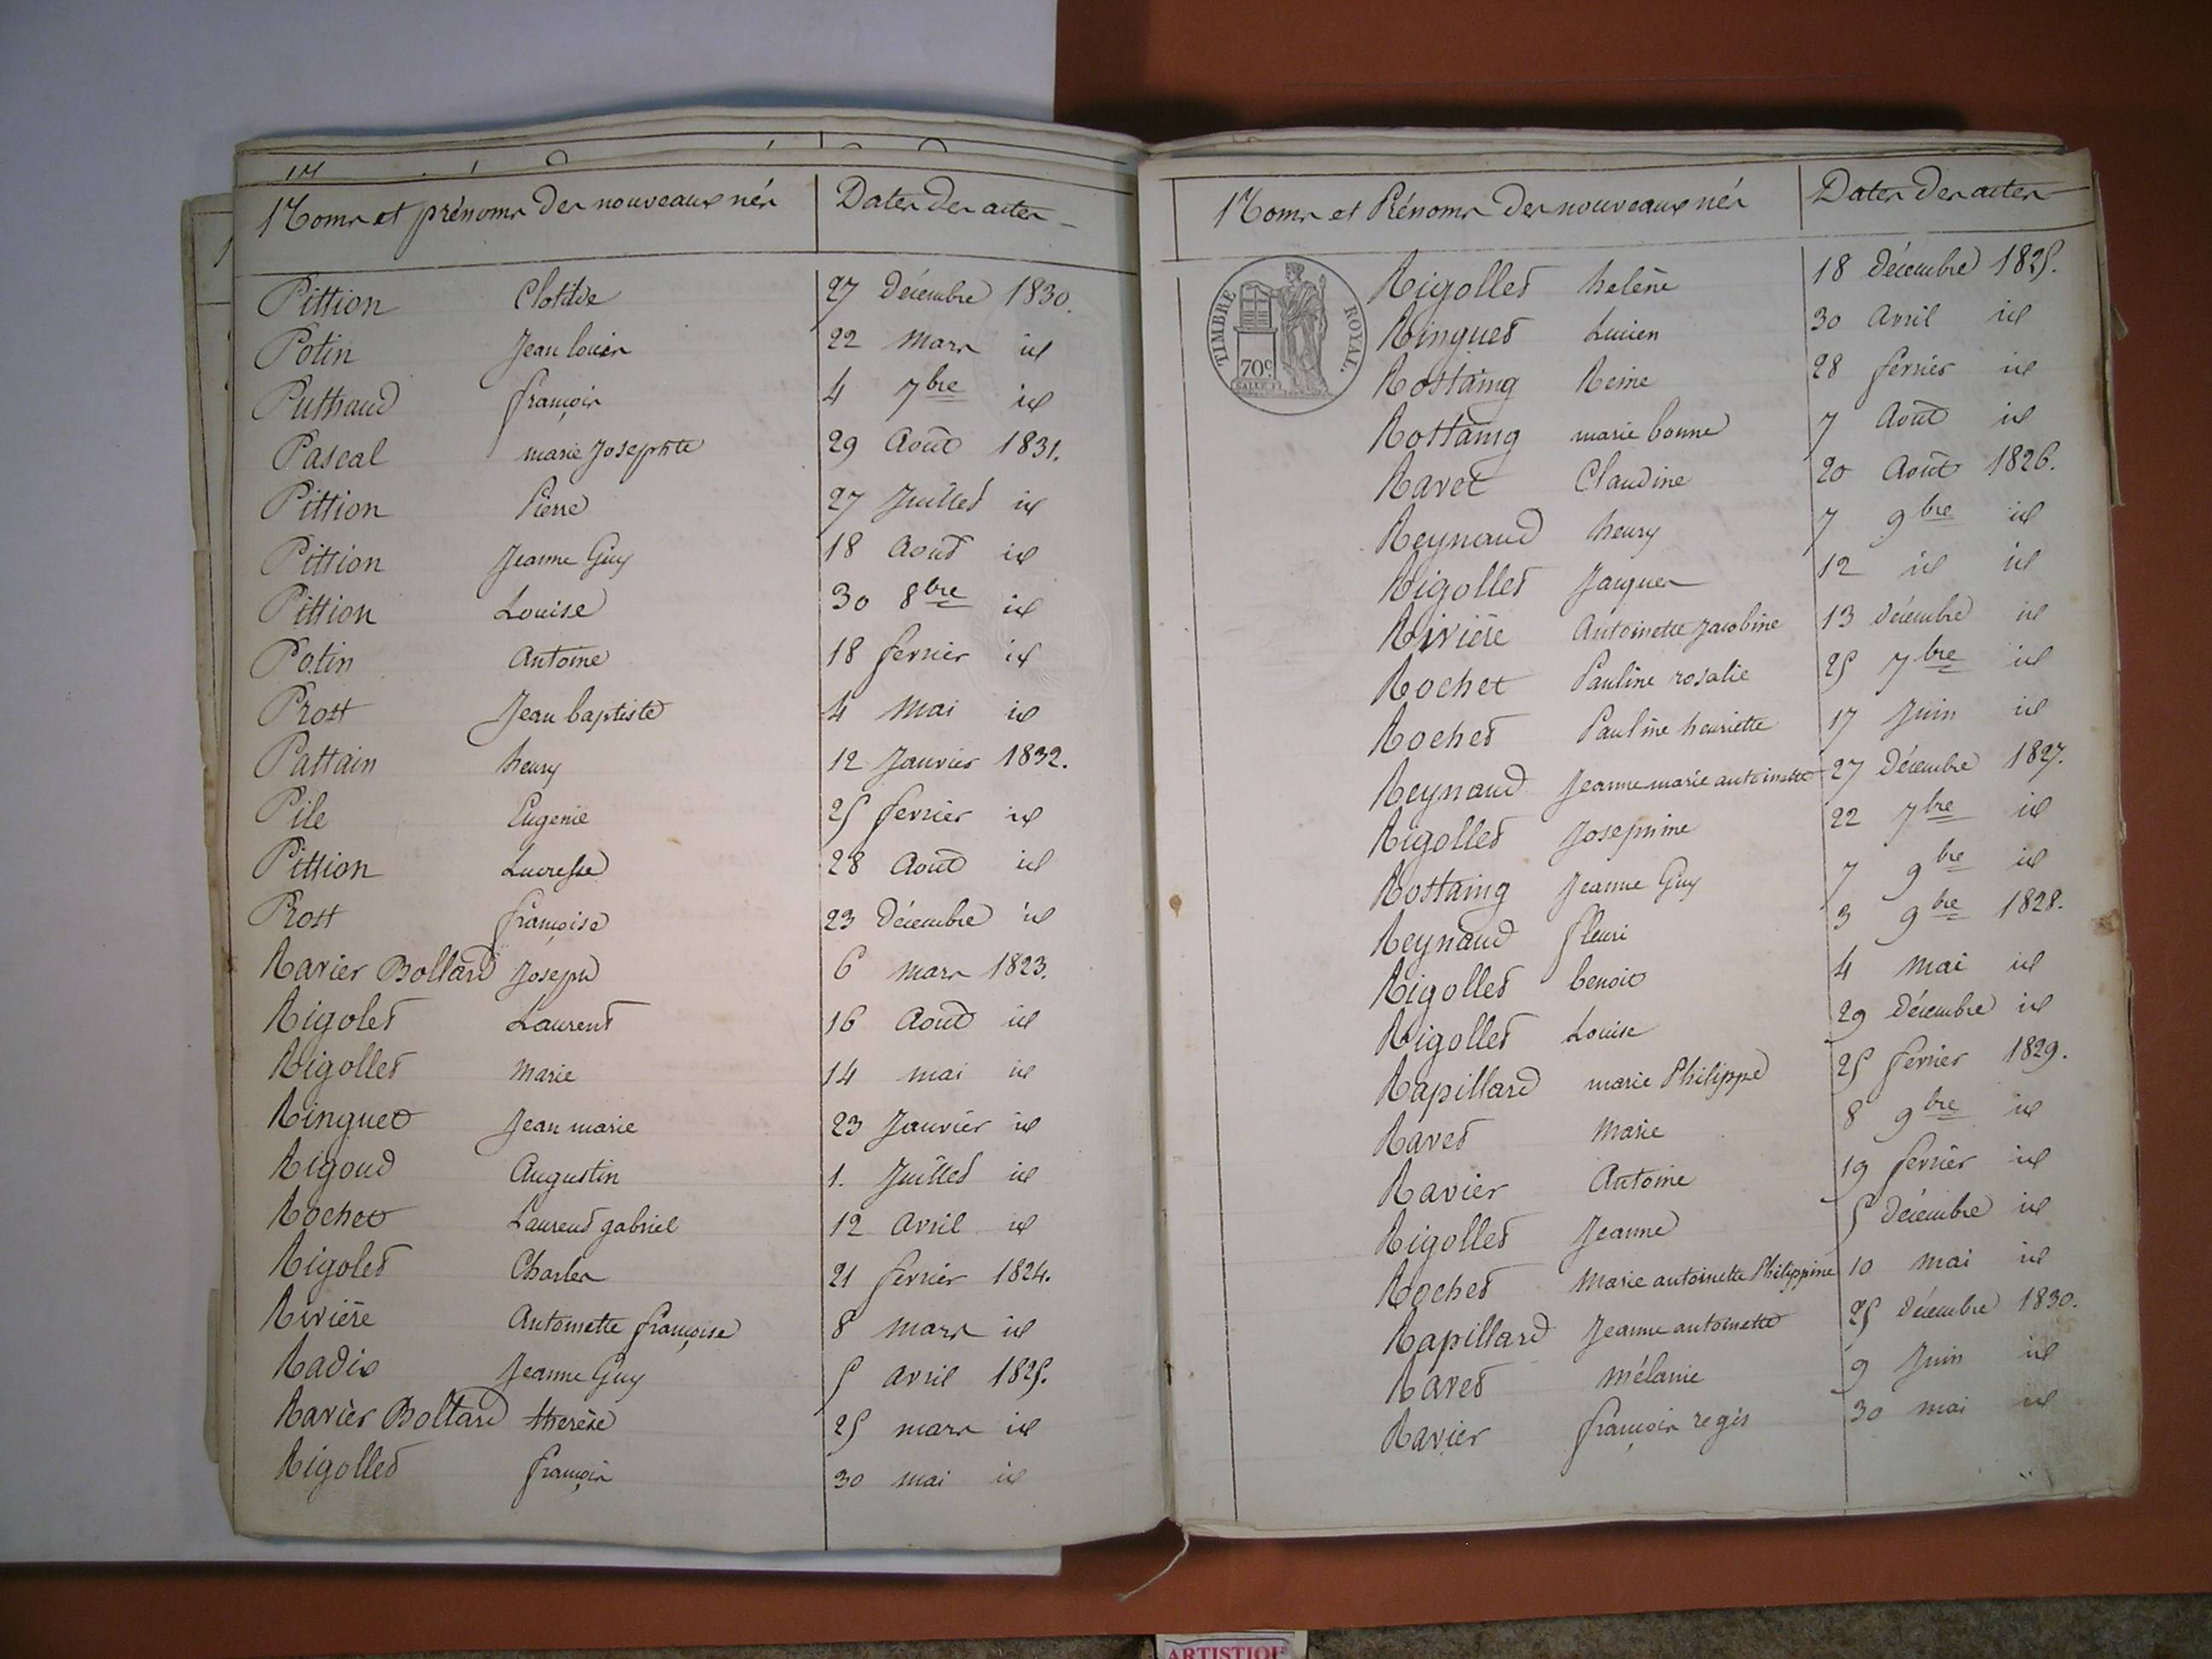 Noms et prénoms des nouveaux nés Dates des actes
Pittion Clotilde 27 Décembre 1830.
Potin Jean louis 22 Mars id
Puthaud françois 4 7bre id
Pascal marie Josephte 29 Août 1831.
Pittion Pierre 27 Juillet id
Pittion Jeanne Guy 18 Août id
Pittion Louise 30 8bre id
Potin Antoine 18 fevrier id
Prost Jean baptiste 4 Mai id
Pattain henry 12 Janvier 1832.
Pile Eugenie 25 fevrier id
Pittion Lucresse 28 Août id
Prost françoise 23 Décembre id
Ravier Bollard Joseph 6 mars 1823.
Rigolet Laurent 16 Août id
Rigollet Marie 14 mai id
Ringuet Jean marie 23 Janvier id
Rigoud Augustin 1. Juillet id
Rochet Laurent gabriel 12 Avril id
Rigolet Charles 21 fevrier 1824.
Rivière Antoinette françoise 8 Mars id
Radix Jeanne Guy 5 Avril 1825.
Ravier Bollard therèse 25 mars id
Rigollet françois 30 mai id
Noms et Prénoms des nouveaux nés Dates des actes
TIMBRE ROYAL.
70c.
Rigollet helène 18 Décembre 1825.
Ringuet Lucien 30 Avril id
Rostaing Reine 28 fevrier id
Rostaing marie bonne 7 Août id
Ravet Claudine 20 Août 1826.
Reynaud henry 7 9bre id
Rigollet Jacques 12 id id
Rivière Antoinette Jacobine 13 Décembre id
Rochet Pauline rosalie 25 7bre id
Rochet Pauline henriette 17 Juin id
Reynaud Jeanne marie antoinette 27 Décembre 1827.
Rigollet Josephine 22 7bre id
Rostaing Jeanne Guy 7 9bre id
Reynaud fleuri 3 9bre 1828.
Rigollet benoit 4 Mai id
Rigollet Louise 29 Décembre id
Rapillard marie Philippe 25 fevrier 1829.
Ravet Marie 8 9bre id
Ravier Antoine 19 fevrier id
Rigollet Jeanne 5 décembre id
Rochet Marie antoinette Philippine 10 mai id
Rapillard Jeanne antoinette 25 décembre 1830.
Ravet Mélanie 9 Juin id
Ravier françois regis 30 mai id
ARTISTIQUE